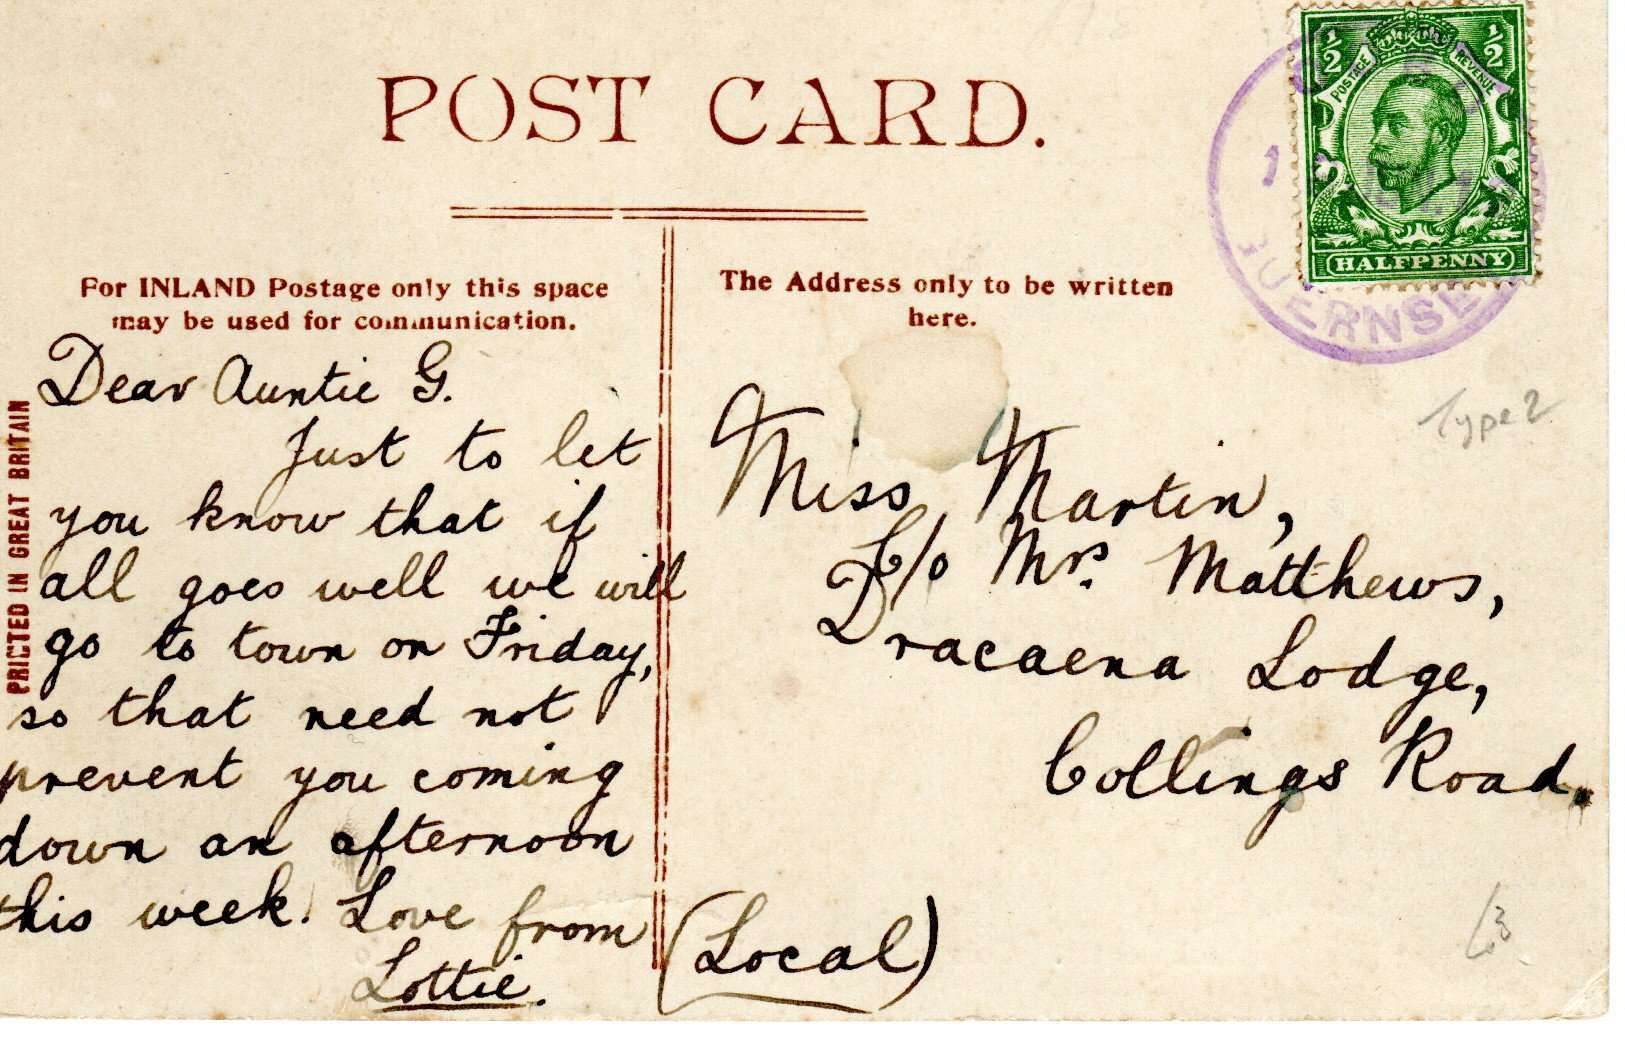 POST CARD.
½ ½
POSTAGE REVENUE
HALFPENNY
For INLAND Postage only this space
may be used for communication.
The Address only to be written
here.
PRINTED IN GREAT BRITAIN
Dear Auntie G.
Just to let
you know that if
all goes well we will
go to town on Friday,
so that need not
prevent you coming
down an afternoon
this week. Love from
Lottie.
Type 2
Miss Martin,
C/o Mrs. Matthews,
Dracaena Lodge,
Collings Road.
(Local)